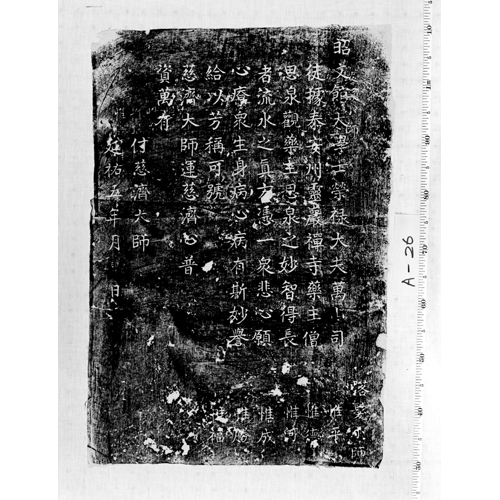 昭文館大學士榮祿大夫萬 司
徒據泰安州靈巖禪寺藥主僧
思泉觀藥主思泉之妙智得長
者流水之真方憑一衆悲心願
心療衆生身病心病有斯妙譽
給以芳稱可號
慈濟大師運慈濟心普
資萬有
付慈濟大師
延祐五年 月 日
師
惟平
惟
惟
惟成
惟
惟福
A-26